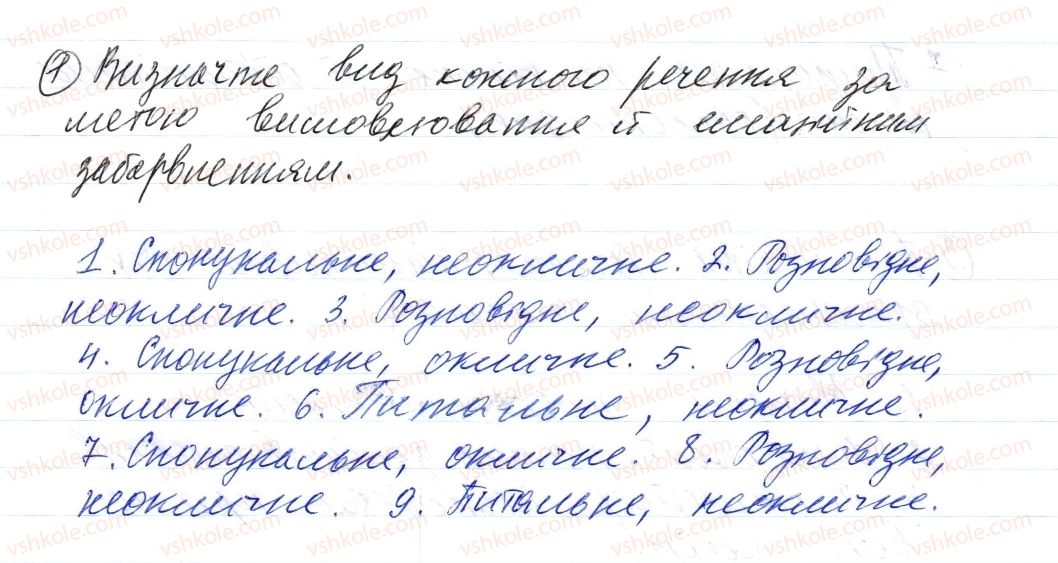 1 Визначте вид кожного речення за
метою висловлювання й емоційним
забарвленням.
1. Спонукальне, неокличне. 2. Розповідне,
неокличне. 3. Розповідне, неокличне.
4. Спонукальне, окличне. 5. Розповідне,
окличне. 6. Питальне, неокличне.
7. Спонукальне, окличне. 8. Розповідне,
неокличне. 9. Питальне, неокличне.